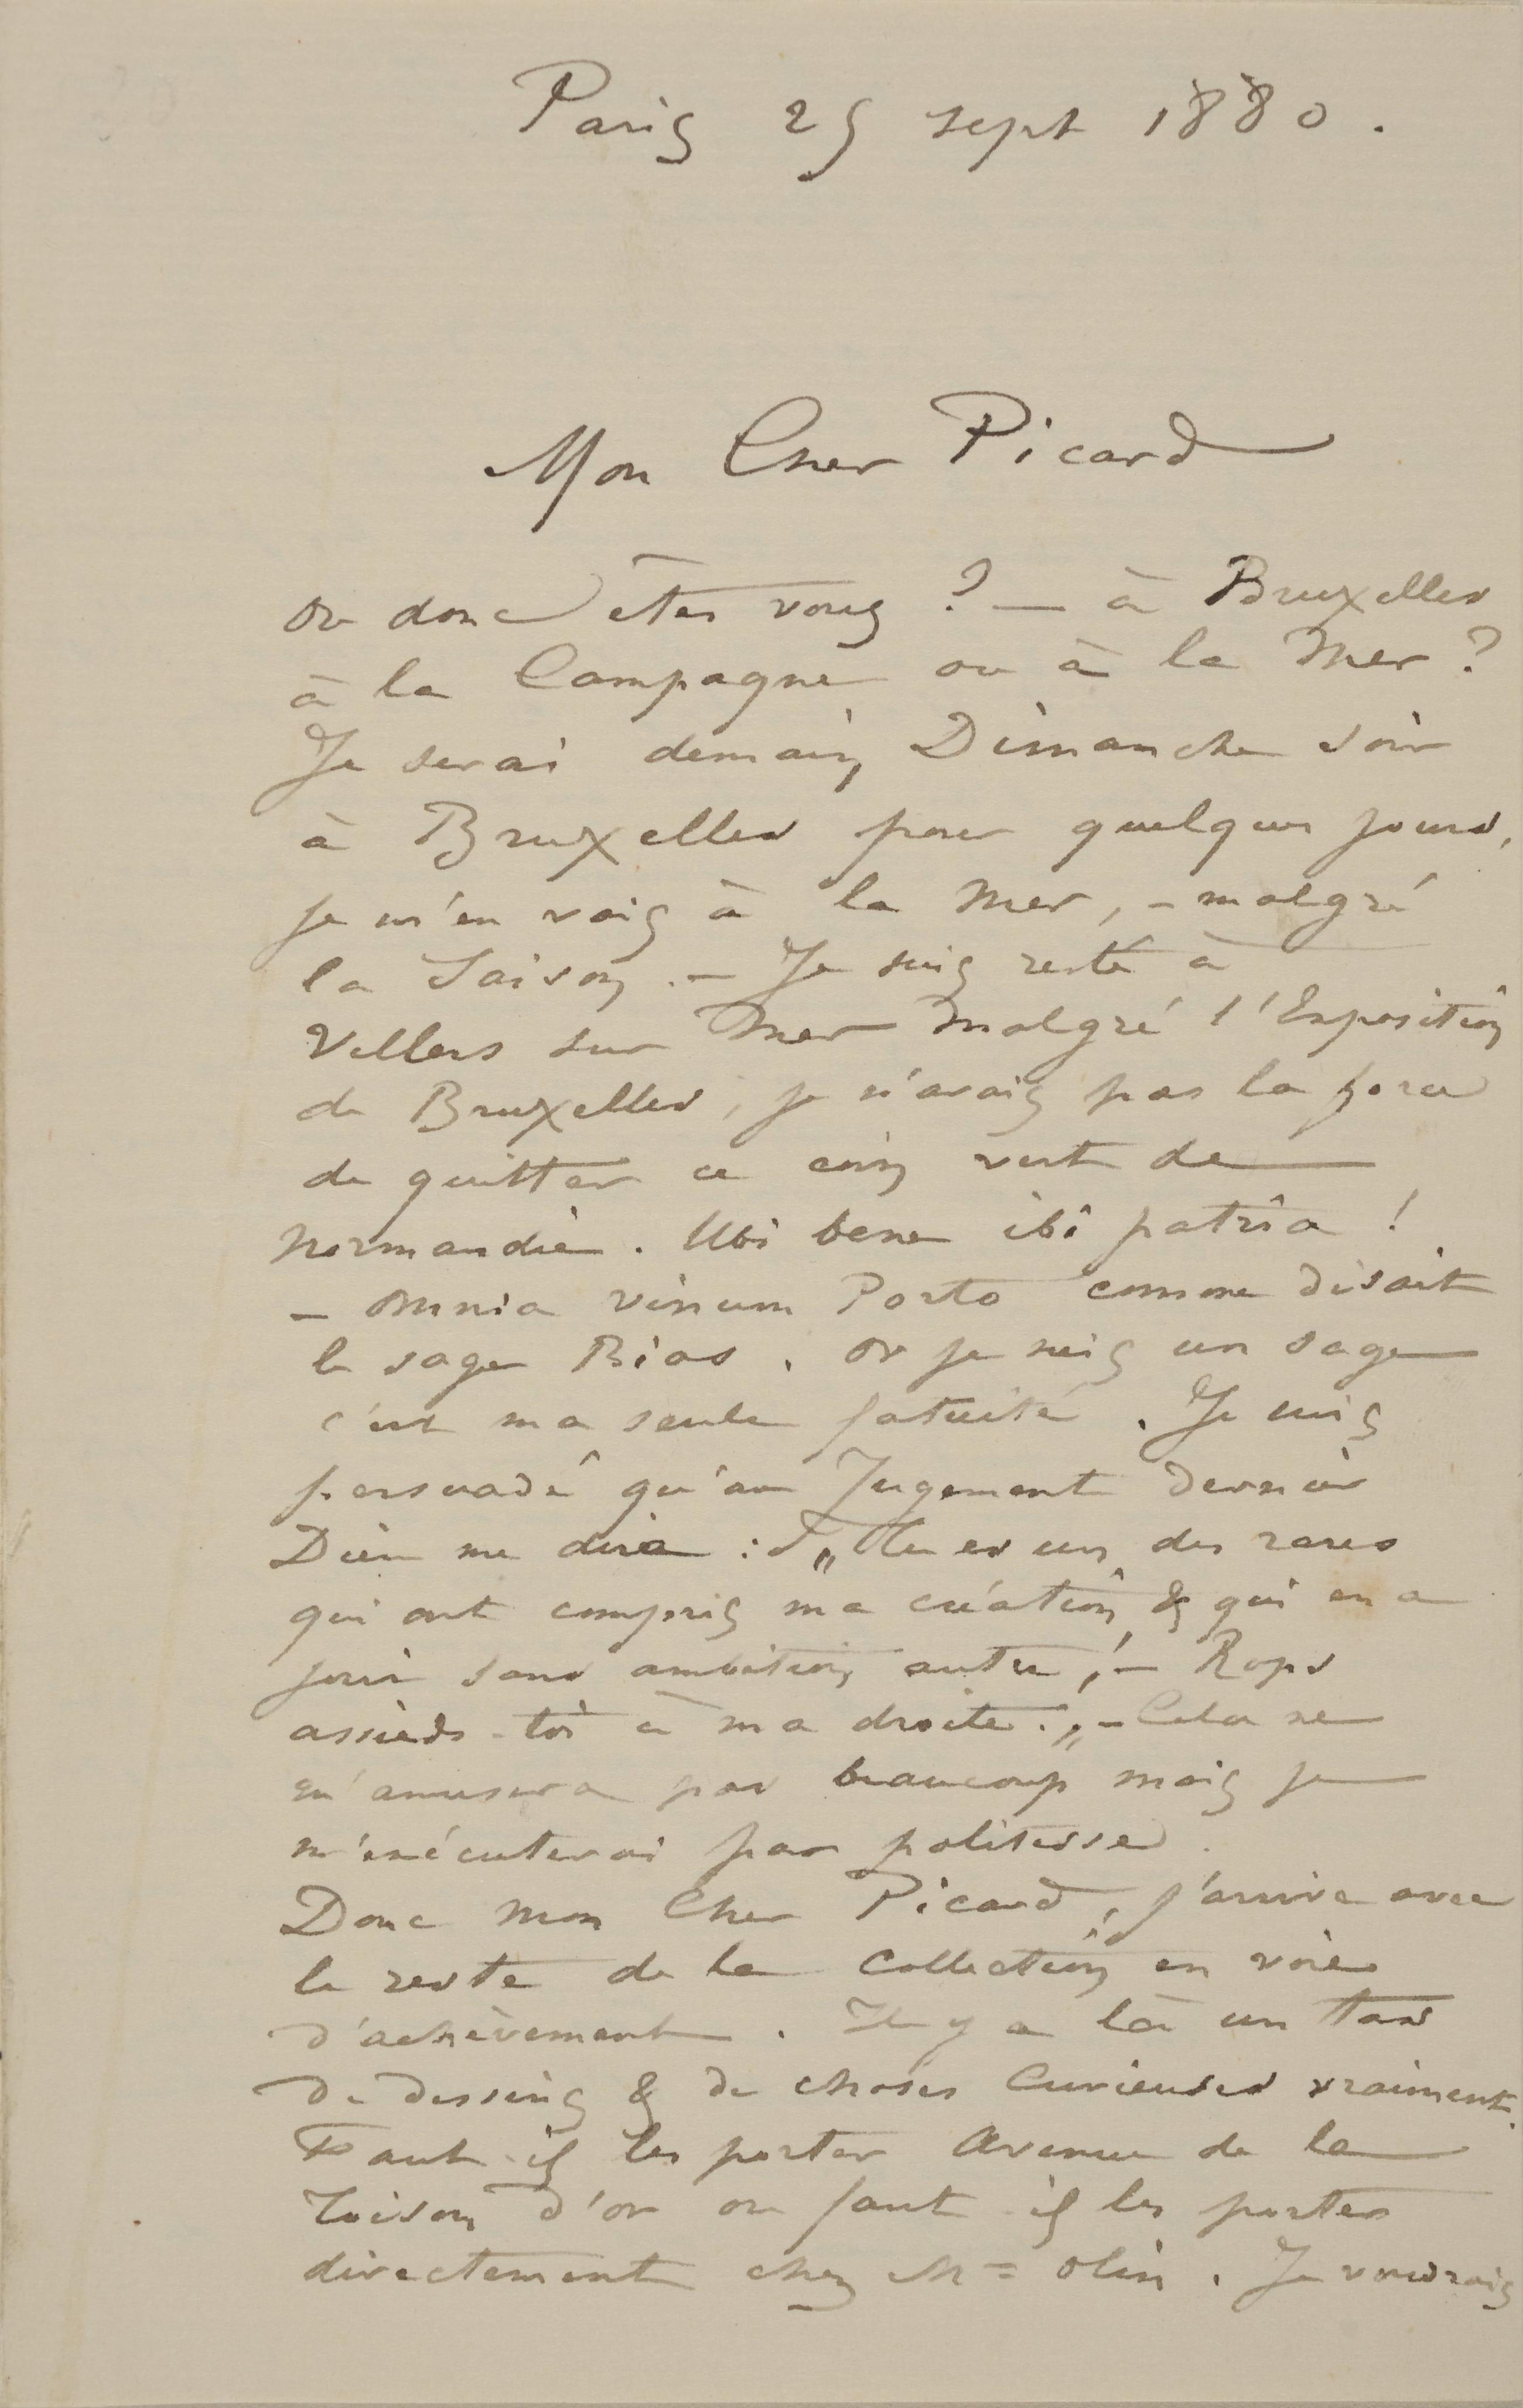 Paris 25 sept 1880.
Mon Cher Picard
où donc êtes vous ? — à Bruxelles
à la Campagne ou à la Mer ?
Je serai demain Dimanche soir
à Bruxelles pour quelques jours,
je m'en vais à la Mer, – malgré
la Saison. – Je suis resté à
Villers sur Mer malgré l'Exposition
de Bruxelles, je n'avais pas la force
de quitter ce coin vert de
Normandie. Ubi bene ibi patria !
– Omnia vinum Porto comme disait
le sage Bias. Or je suis un sage
c'est ma seule fatuité. Je suis
persuadé qu'au Jugement dernier
Dieu me dira : „ tu es un des rares
qui ont compris ma création & qui en a
joui sans ambition autre, – Rops
assieds-toi à ma droite. „ – Cela ne
m'amusera pas beaucoup mais je
m'exécuterai par politesse.
Donc mon Cher Picard, j'arrive avec
le reste de la Collection en voie
d'achèvement. Il y a là un tas
de dessins & de choses Curieuses vraiment.
Faut-il les porter Avenue de la
Toison d'or ou faut-il les porter
directement chez Mr Olin. Je voudrais